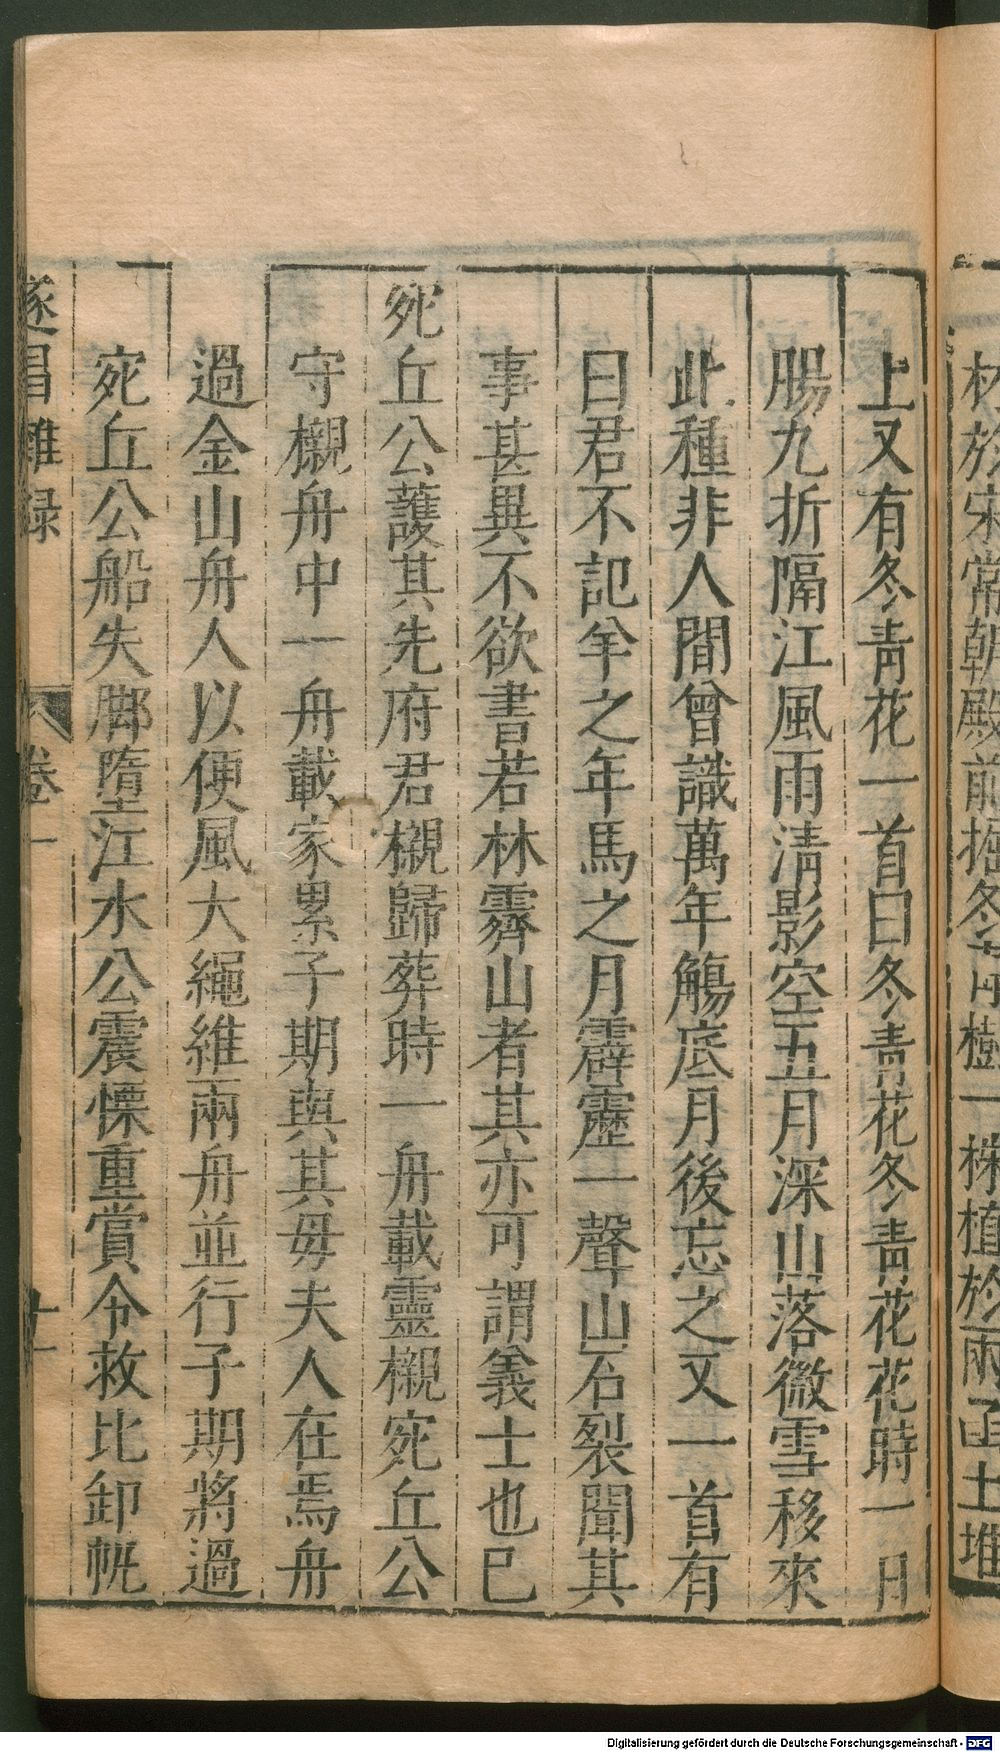 林於宋常朝殿前掘冬青樹一株植於兩函土堆
上又有冬青花一首曰冬青花冬青花花時一日
腸九折隔江風雨清影空五月深山落微雪移來
此種非人間曾識萬年觴底月後忘之又一首有
曰君不記羊之年馬之月霹靂一聲山石裂聞其
事甚異不欲書若林霽山者其亦可謂義士也已
宛丘公護其先府君櫬歸葬時一舟載靈櫬宛丘公
守櫬舟中一舟載家累子期與其毋夫人在焉舟
過金山舟人以便風大繩維兩舟並行子期將過
宛丘公船失脚墮江水公震慄重賞令救比卸帆
遂昌雜録
卷一
十一
Digitalisierung gefördert durch die Deutsche Forschungsgemeinschaft - DFG